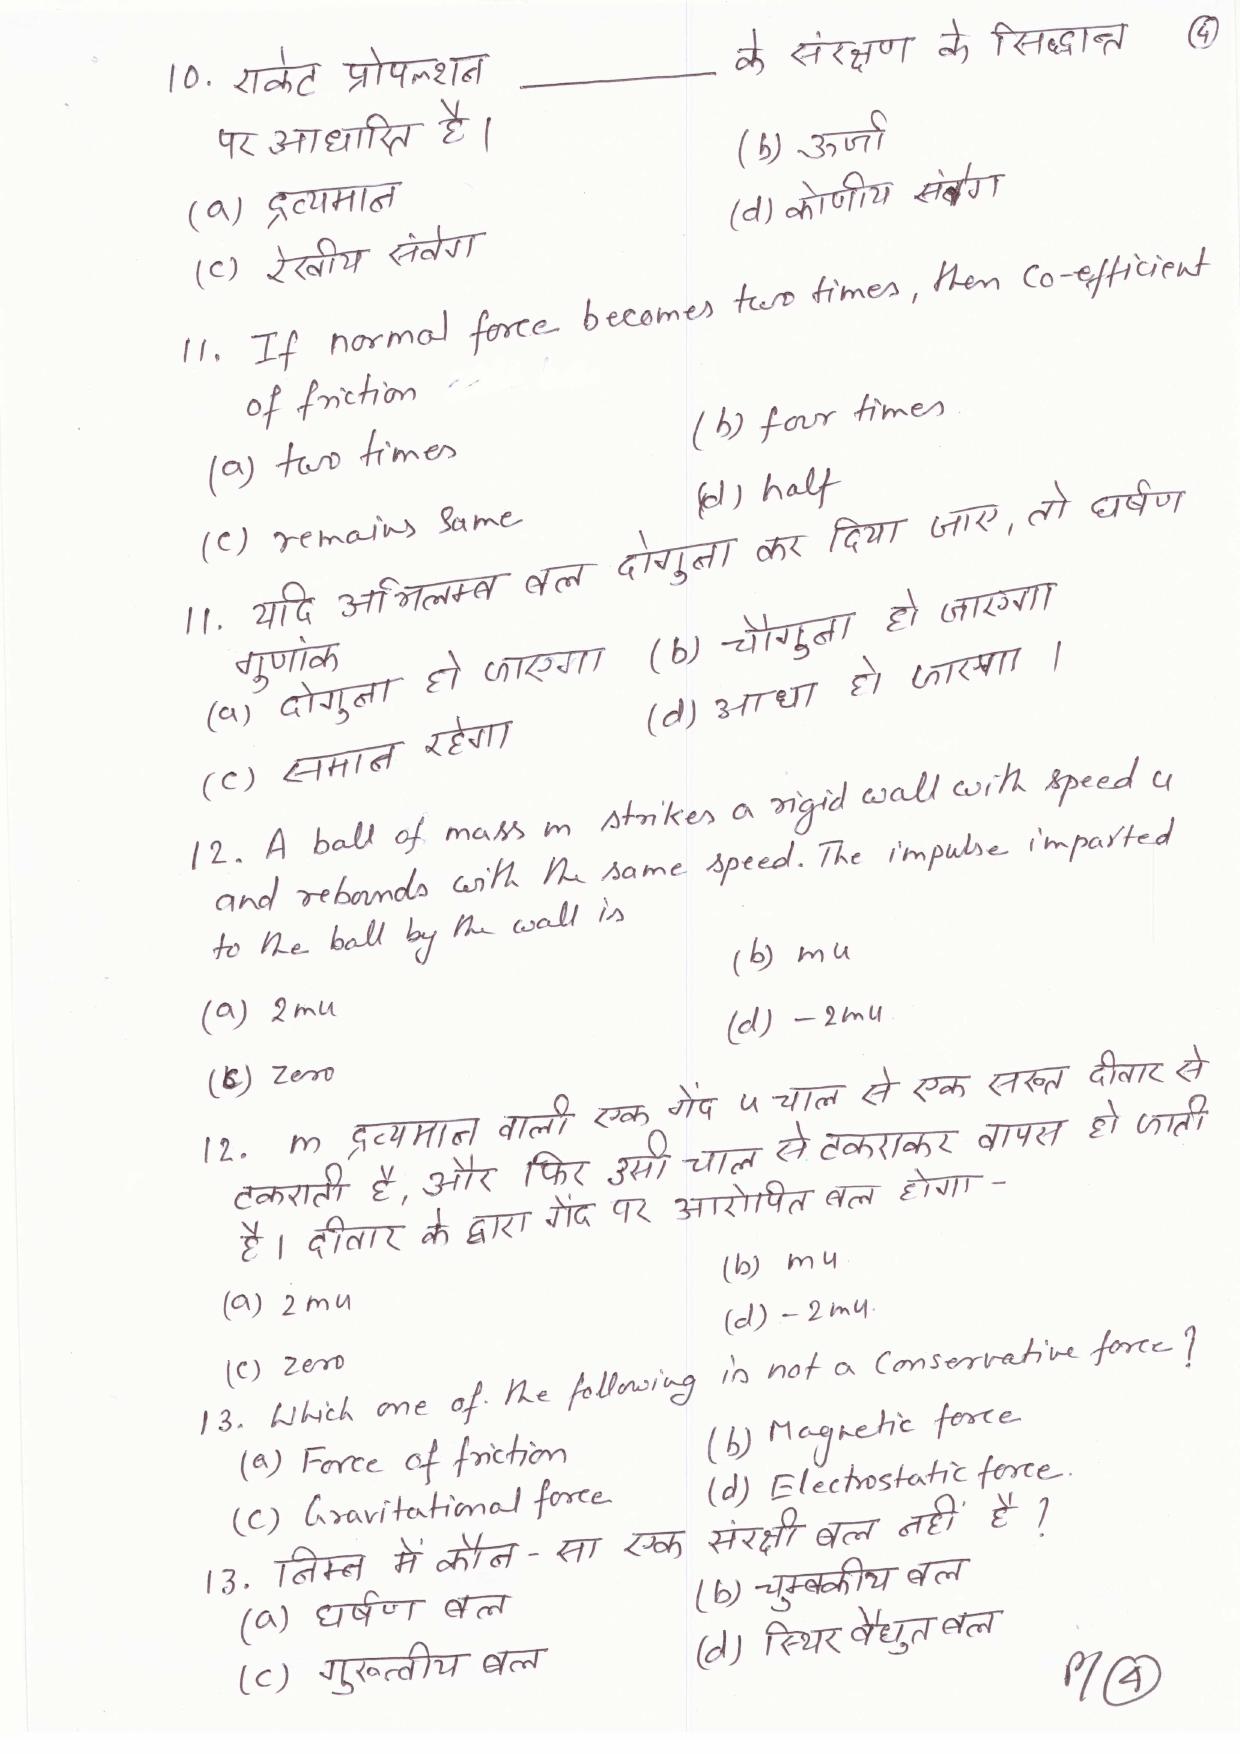 ④
10. राकेट प्रोपल्शन ________ के संरक्षण के सिद्धान्त
पर आधारित है।
(a) द्रव्यमान (b) ऊर्जा
(c) रेखीय संवेग (d) कोणीय संवेग
11. If normal force becomes two times, then co-efficient
of friction
(a) two times (b) four times
(c) remains same (d) half
11. यदि अभिलम्ब बल दोगुना कर दिया जाए, तो घर्षण
गुणांक
(a) दोगुना हो जाएगा (b) चौगुना हो जाएगा
(c) समान रहेगा (d) आधा हो जाएगा।
12. A ball of mass m strikes a rigid wall with speed u
and rebounds with the same speed. The impulse imparted
to the ball by the wall is
(a) 2mu (b) mu
(c) zero (d) -2mu
12. m द्रव्यमान वाली एक गेंद u चाल से एक सख्त दीवार से
टकराती है, और फिर उसी चाल से टकराकर वापस हो जाती
है। दीवार के द्वारा गेंद पर आरोपित बल होगा -
(a) 2mu (b) mu
(c) zero (d) -2mu.
13. Which one of the following is not a conservative force?
(a) Force of friction (b) Magnetic force
(c) Gravitational force (d) Electrostatic force.
13. निम्न में कौन-सा एक संरक्षी बल नहीं है?
(a) घर्षण बल (b) चुम्बकीय बल
(c) गुरुत्वीय बल (d) स्थिर वैद्युत बल